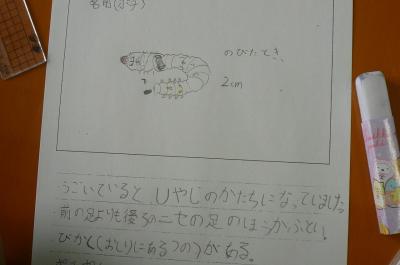 名前(
のびたとき、
2cm
うごいていると、Uやじのかたちになっていました。
前の足よりも後ろのニセの足のほうがふとい。
びかく(おしりにあるつの)がある。